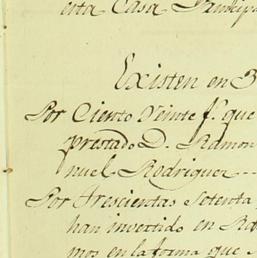 esta Casa Principa
Existen en B
Por Ciento Veinte f.s que
prestado D. Ramon
nuel Rodriguez
Por trescientas Setenta
han invertido en Ra
mos en la forma que